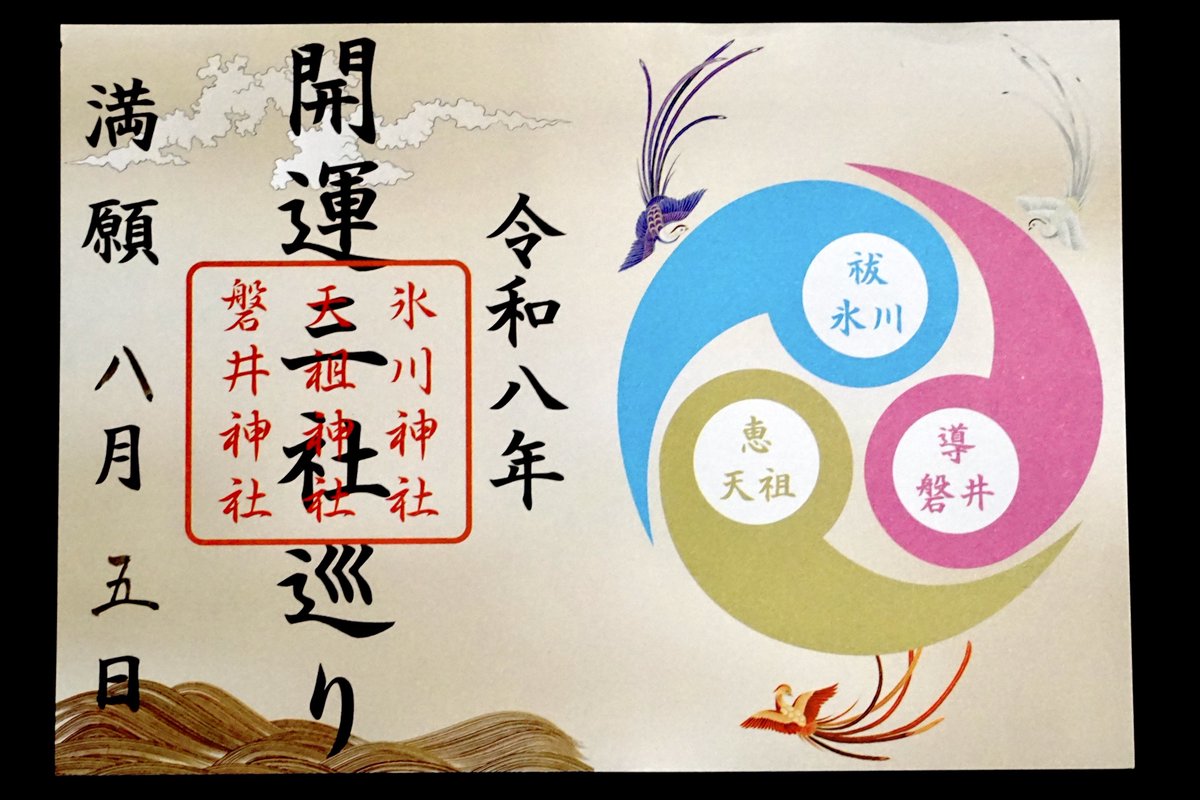 令和八年
開運三社巡り
氷川神社
天祖神社
磐井神社
満願 八月 五日
祓
氷川
導
磐井
恵
天祖